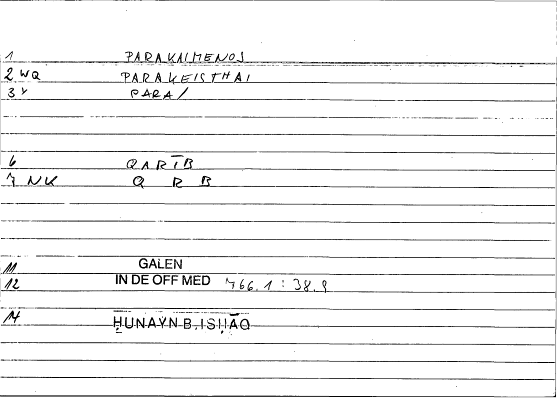 1 PARAKAIMENOS
2 WQ PARAKEISTHAI
3 Y PARA/
6 QARĪB
7 NK Q R B
11 GALEN
12 IN DE OFF MED 766.1 : 38.9
14 ḤUNAYN B. ISḤĀQ